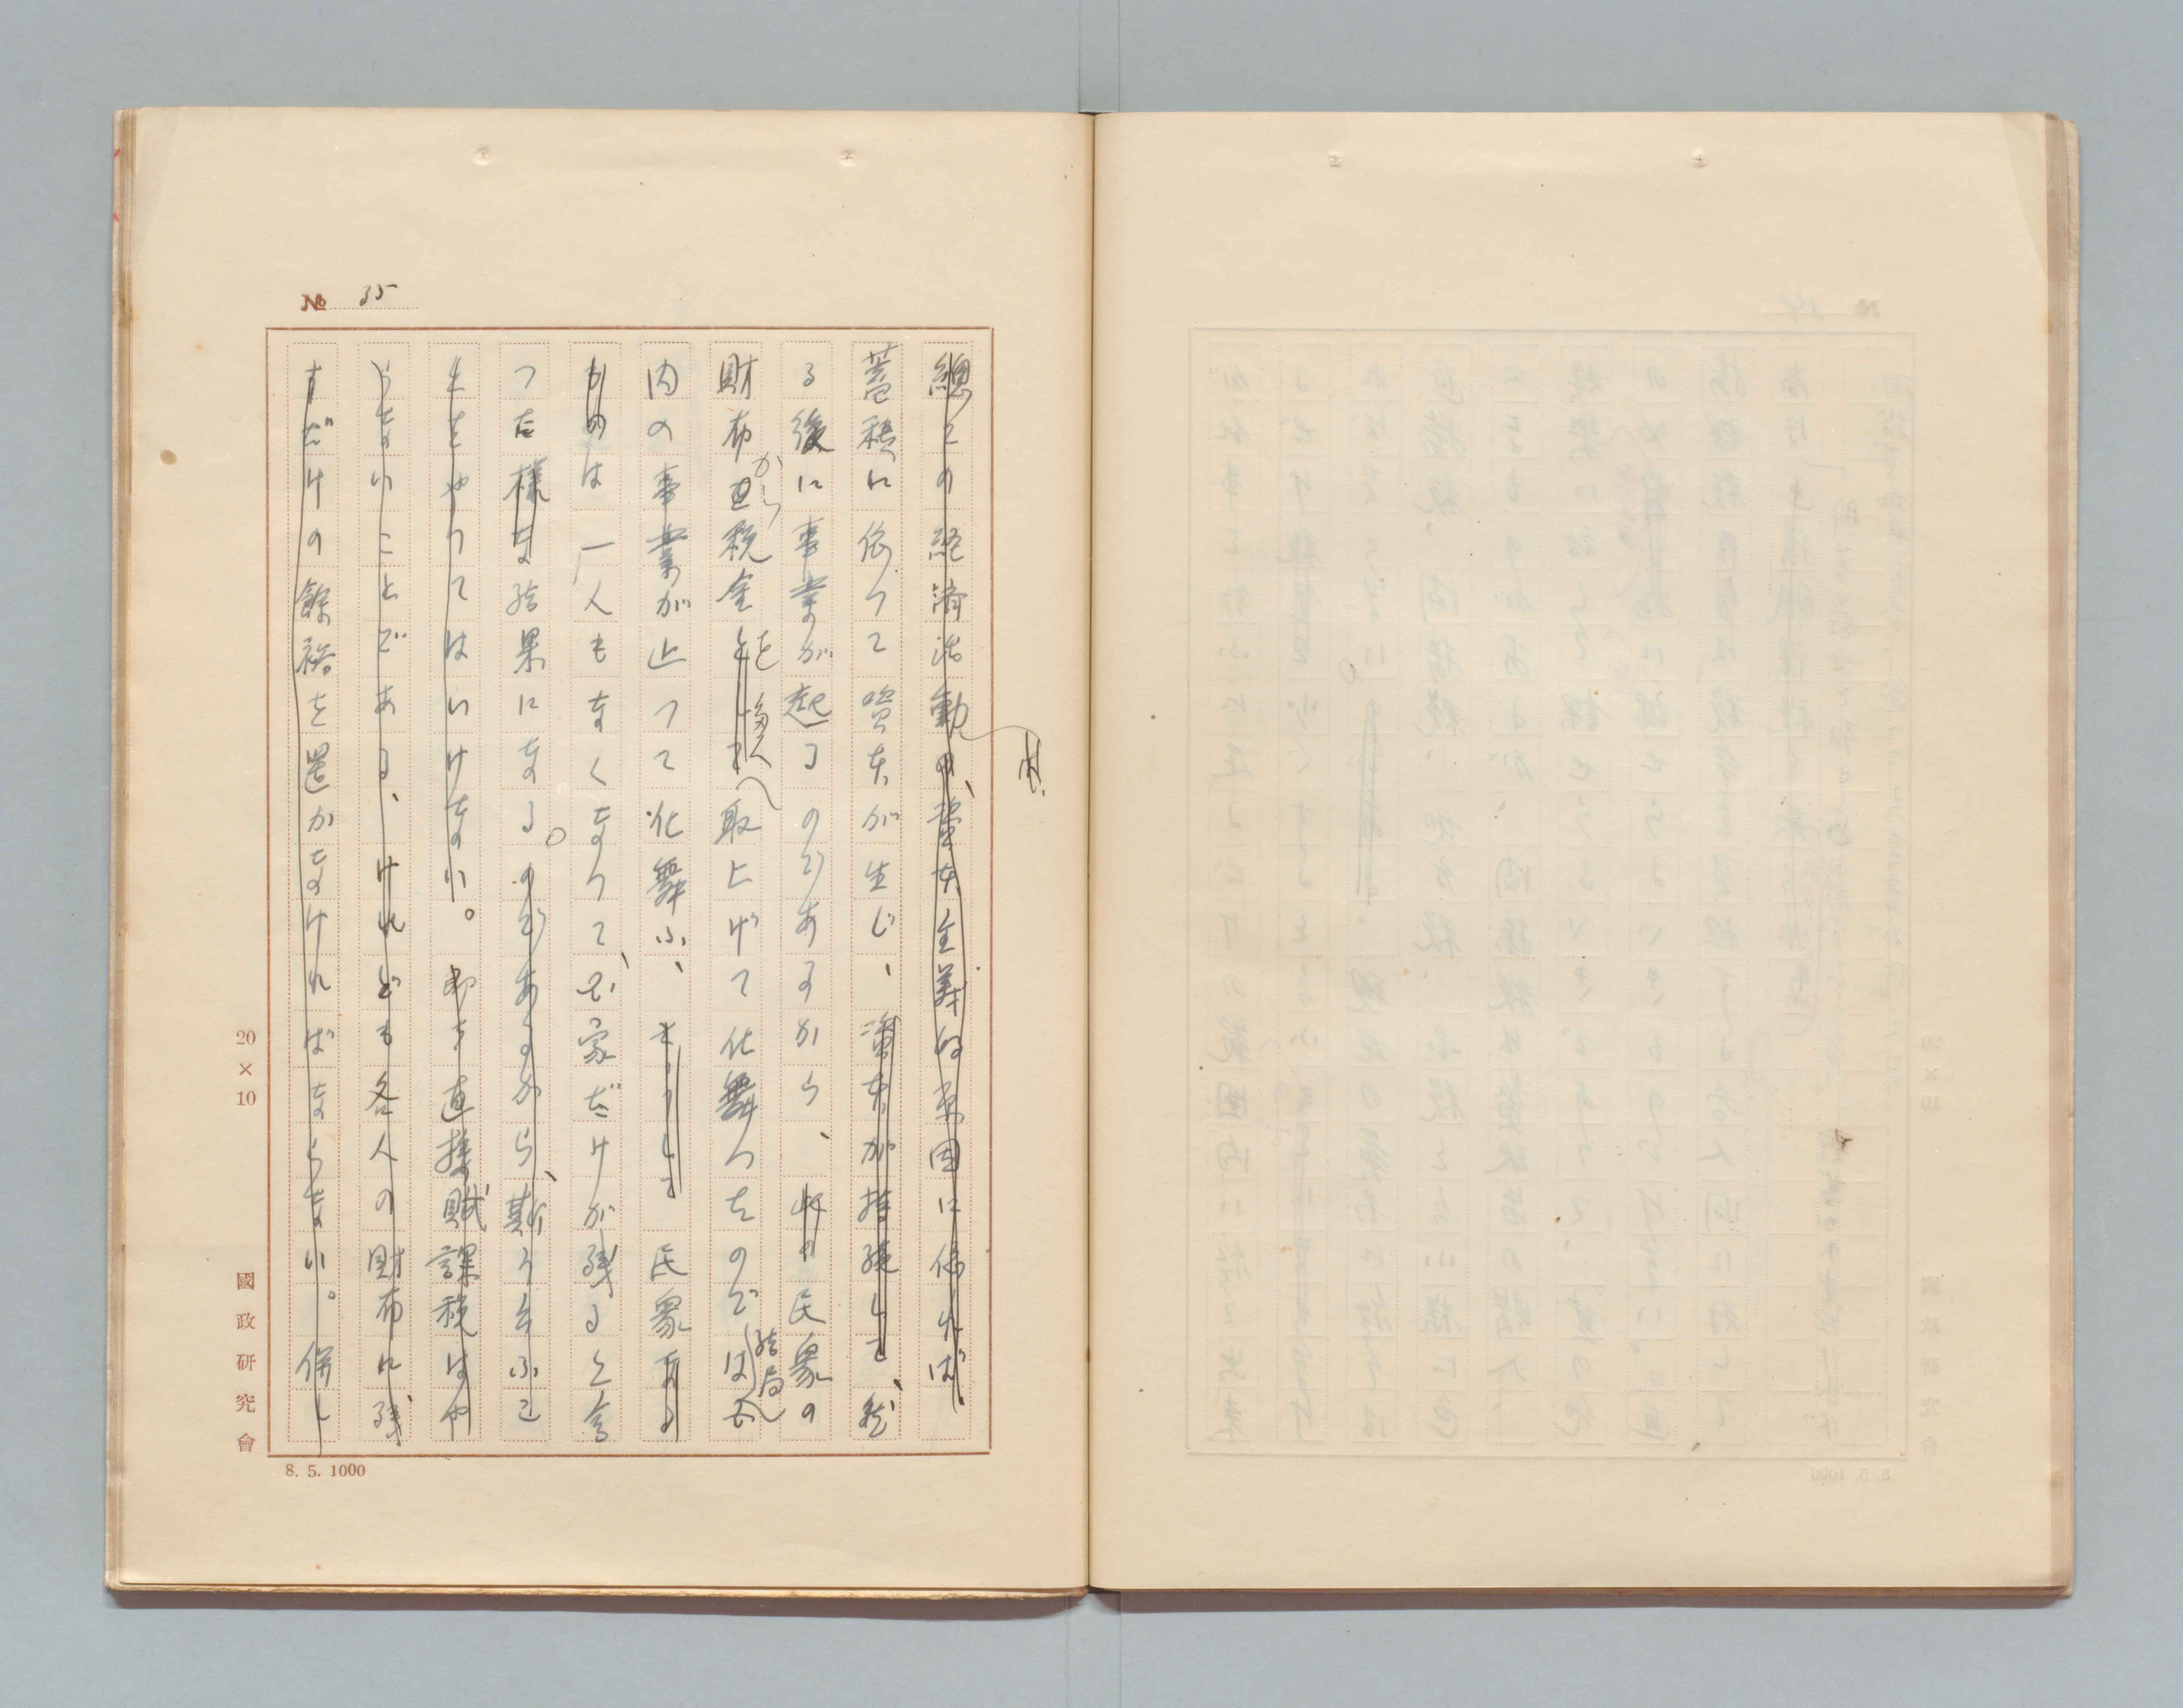 № 35
總ての經濟活動の、資本主義的原因に依れば、
蓄積に依つて資本が生じ、資本が持続して、然
る後に事業が起るのであるから、此の民衆の
財布から直税金を搾へ取上げて仕舞つたのでは結局
内の事業が止つて仕舞ふ、さうして民衆なる
ものは一人もなくなつて、国家だけが残ると云
つた様な結果になる。のであるから、斯う云ふこ
とをやつてはいけない。即ち直接賦課税はや
らないことである、けれども各人の財布に残
すだけの餘裕を置かなければならない。併し
20×10
國政研究會
8. 5. 1000